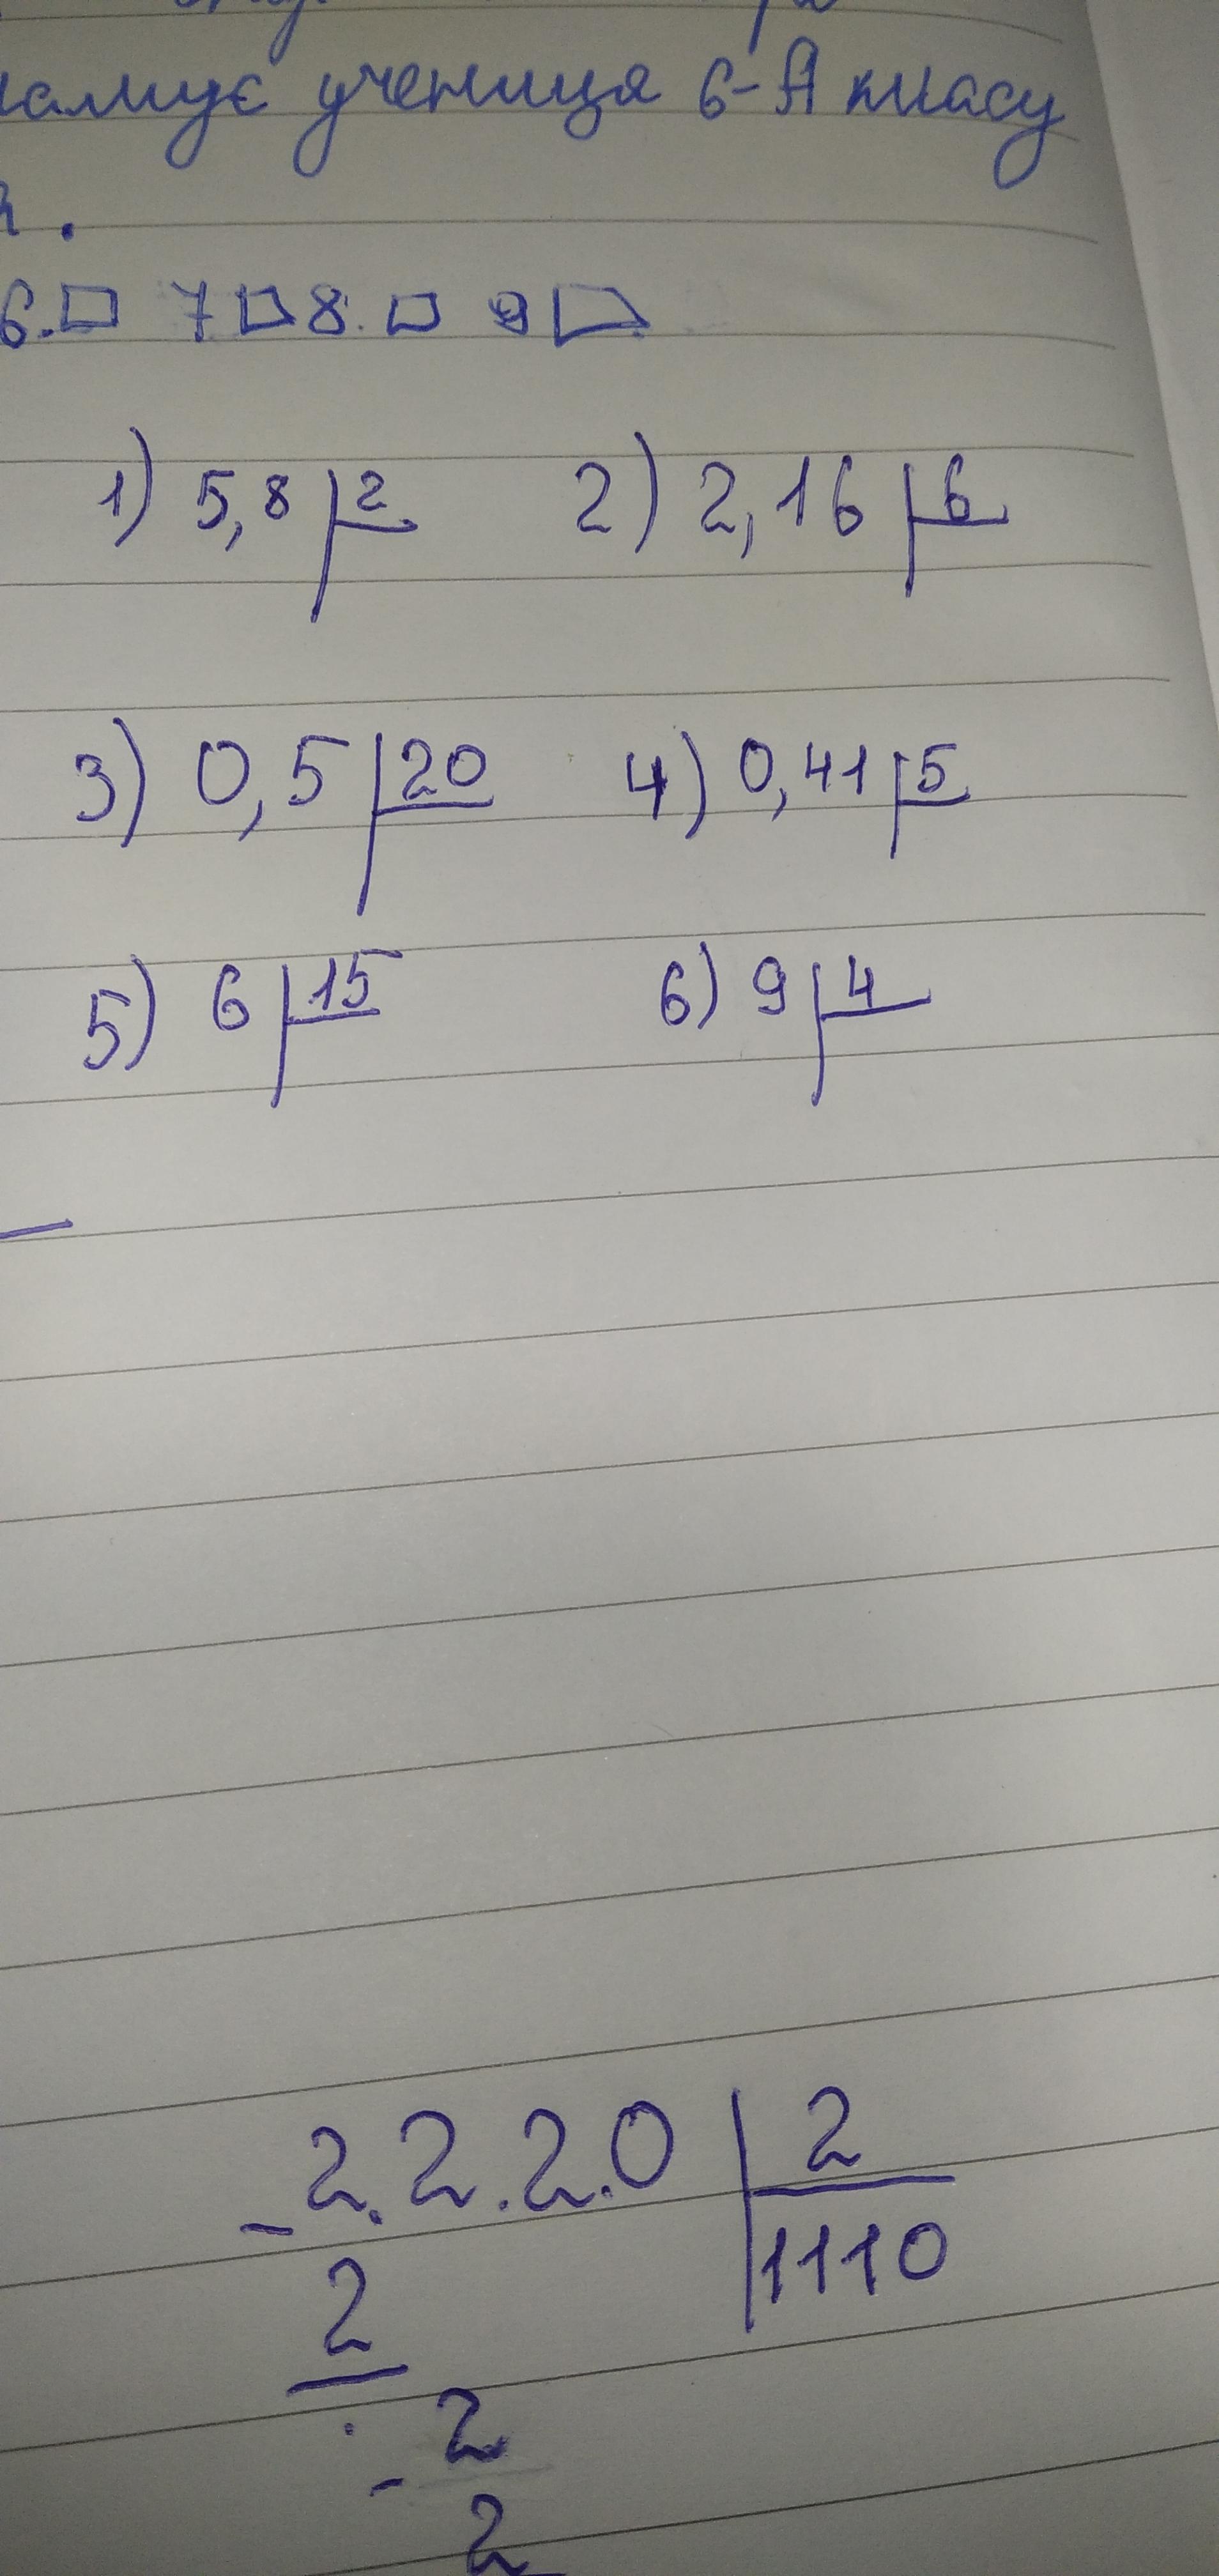 учениця 6-А класу
6. 7 8. 9
1) 5,8 2 2) 2,16 6
3) 0,5 20 4) 0,41 5
5) 6 15 6) 9 4
- 2.2.2.0 2
2 1110
- 2
2